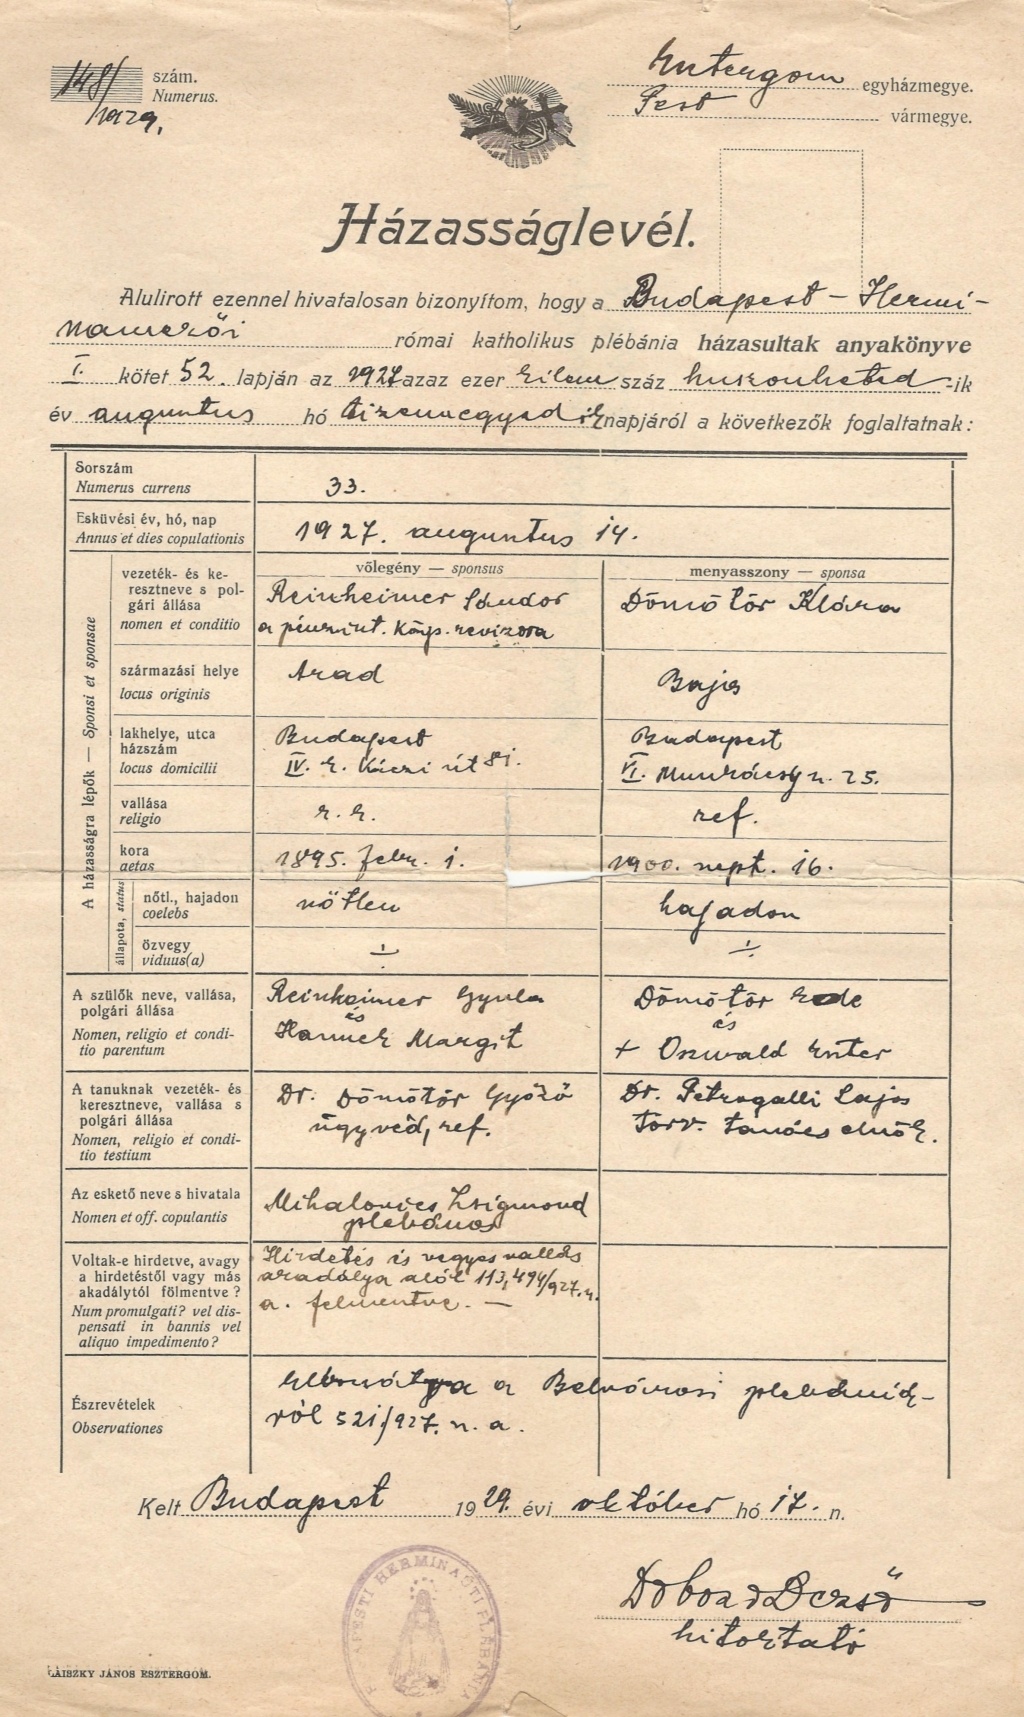 148/ szám.
Numerus.
1929.
Esztergom egyházmegye.
Pest vármegye.
Házasságlevél.
Alulirott ezennel hivatalosan bizonyítom, hogy a Budapest - Hermi-
namezői római katholikus plébánia házasultak anyakönyve
I. kötet 52. lapján az 1927 azaz ezer kilenc száz huszonheted -ik
év augusztus hó tizennegyedik napjáról a következők foglaltatnak:
Sorszám
Numerus currens
33.
Esküvési év, hó, nap
Annus et dies copulationis
1927. augusztus 14.
A házasságra lépők — Sponsi et sponsae
vőlegény — sponsus
menyasszony — sponsa
vezeték- és ke-
resztneve s pol-
gári állása
nomen et conditio
Reinheimer Sándor
a pénzint. Közp. revizora
Dömötör Klára
származási helye
locus originis
Arad
Baja
lakhelye, utca
házszám
locus domicilii
Budapest
IV. k. Váczi út 81.
Budapest
VI. Munkácsy u. 25.
vallása
religio
r. k.
ref.
kora
aetas
1895. febr. 1.
1900. szept. 16.
állapota, status
nőtl., hajadon
coelebs
nőtlen
hajadon
özvegy
viduus(a)
A szülők neve, vallása,
polgári állása
Nomen, religio et condi-
tio parentum
Reinheimer Gyula
és
Margit
Dömötör Ede
és
+ Oszwald Eszter
A tanuknak vezeték- és
keresztneve, vallása s
polgári állása
Nomen, religio et condi-
tio testium
Dr. Dömötör Győző
ügyvéd, ref.
Dr. Petrogalli Lajos
törv. tanácselnök.
Az eskető neve s hivatala
Nomen et off. copulantis
Mihalovics Zsigmond
plebános
Voltak-e hirdetve, avagy
a hirdetéstől vagy más
akadálytól fölmentve?
Num promulgati? vel dis-
pensati in bannis vel
aliquo impedimento?
Hirdetés és vegyes vallás
akadálya alól 113,494/927. sz.
a. felmentve. —
Észrevételek
Observationes
Elbocsátva a Belvárosi plebániá-
ról 521/927. sz. a.
Kelt Budapest 1929. évi október hó 17. n.
Dezső
hitoktató
BUDAPESTI HERMINAÚTI PLÉBÁNIA
LAISZKY JÁNOS ESZTERGOM.